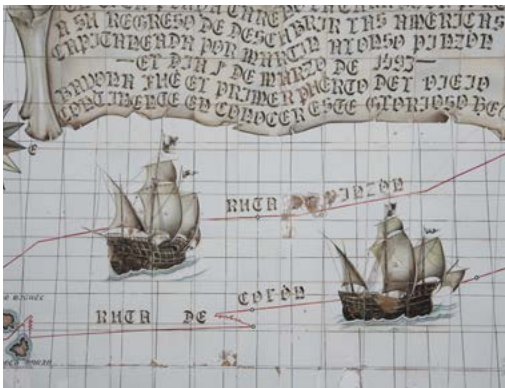 A SU REGRESO DE DESCUBRIR LAS AMERICAS
CAPITANEADA POR MARTIN ALONSO PINZON
—EL DIA 1 DE MARZO DE 1493—
BAYONA FUÉ EL PRIMER PUERTO DEL VIEJO
CONTINENTE EN CONOCER ESTE GLORIOSO HEC
E
RUTA DE PINZÓN
RUTA DE COLÓN